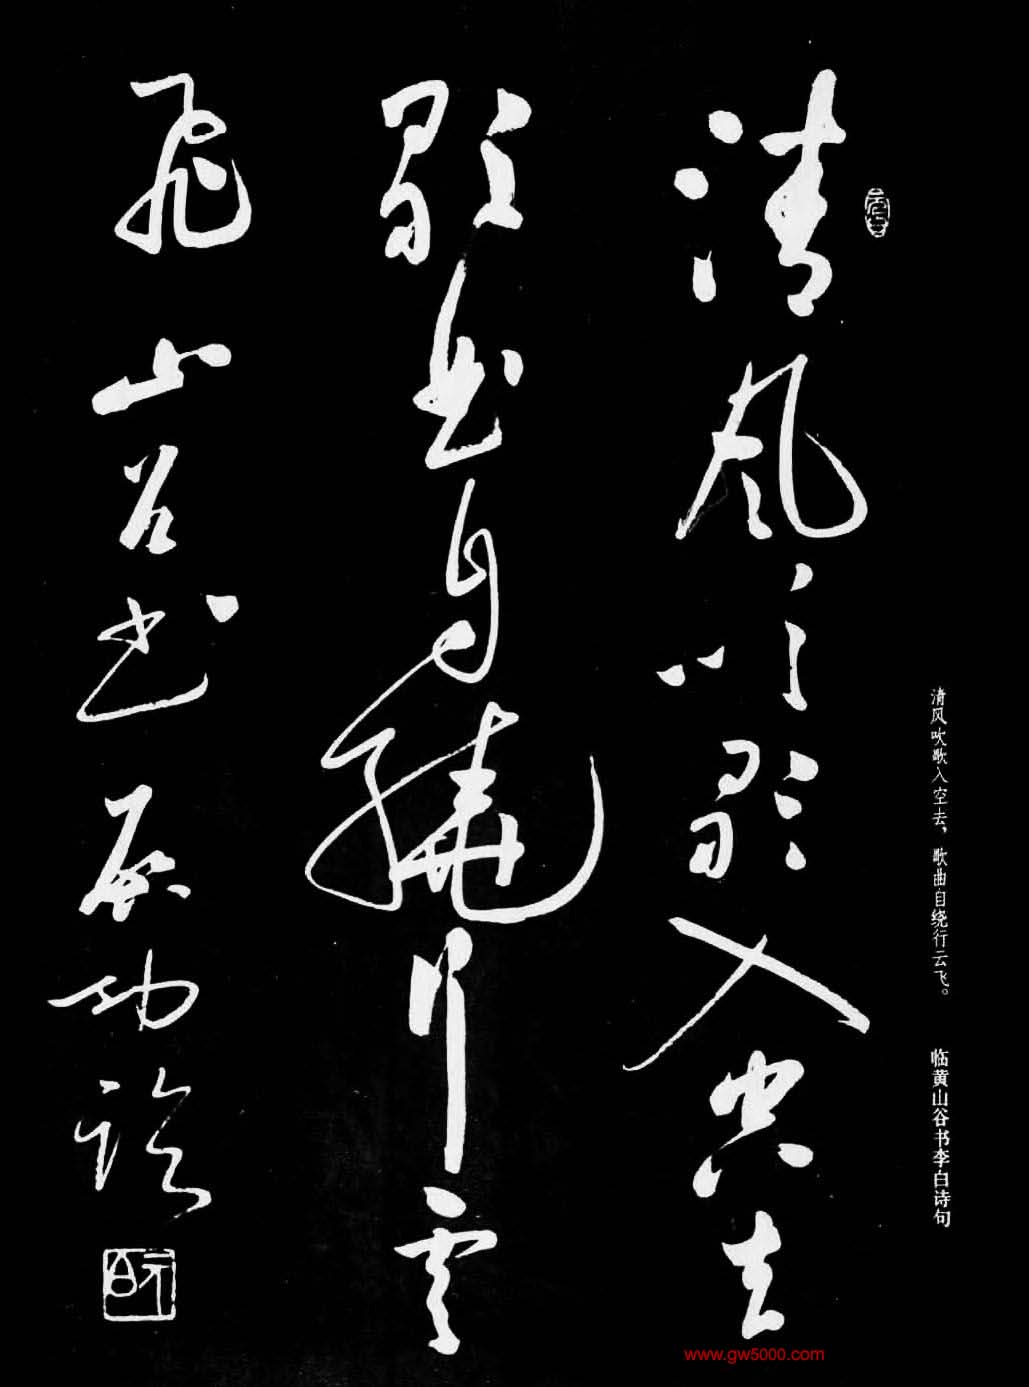 清風吹歌入空去
歌曲自繞行雲
飛 山谷書 啟功臨
清风吹歌入空去，歌曲自绕行云飞。
临黄山谷书李白诗句
www.gw5000.com